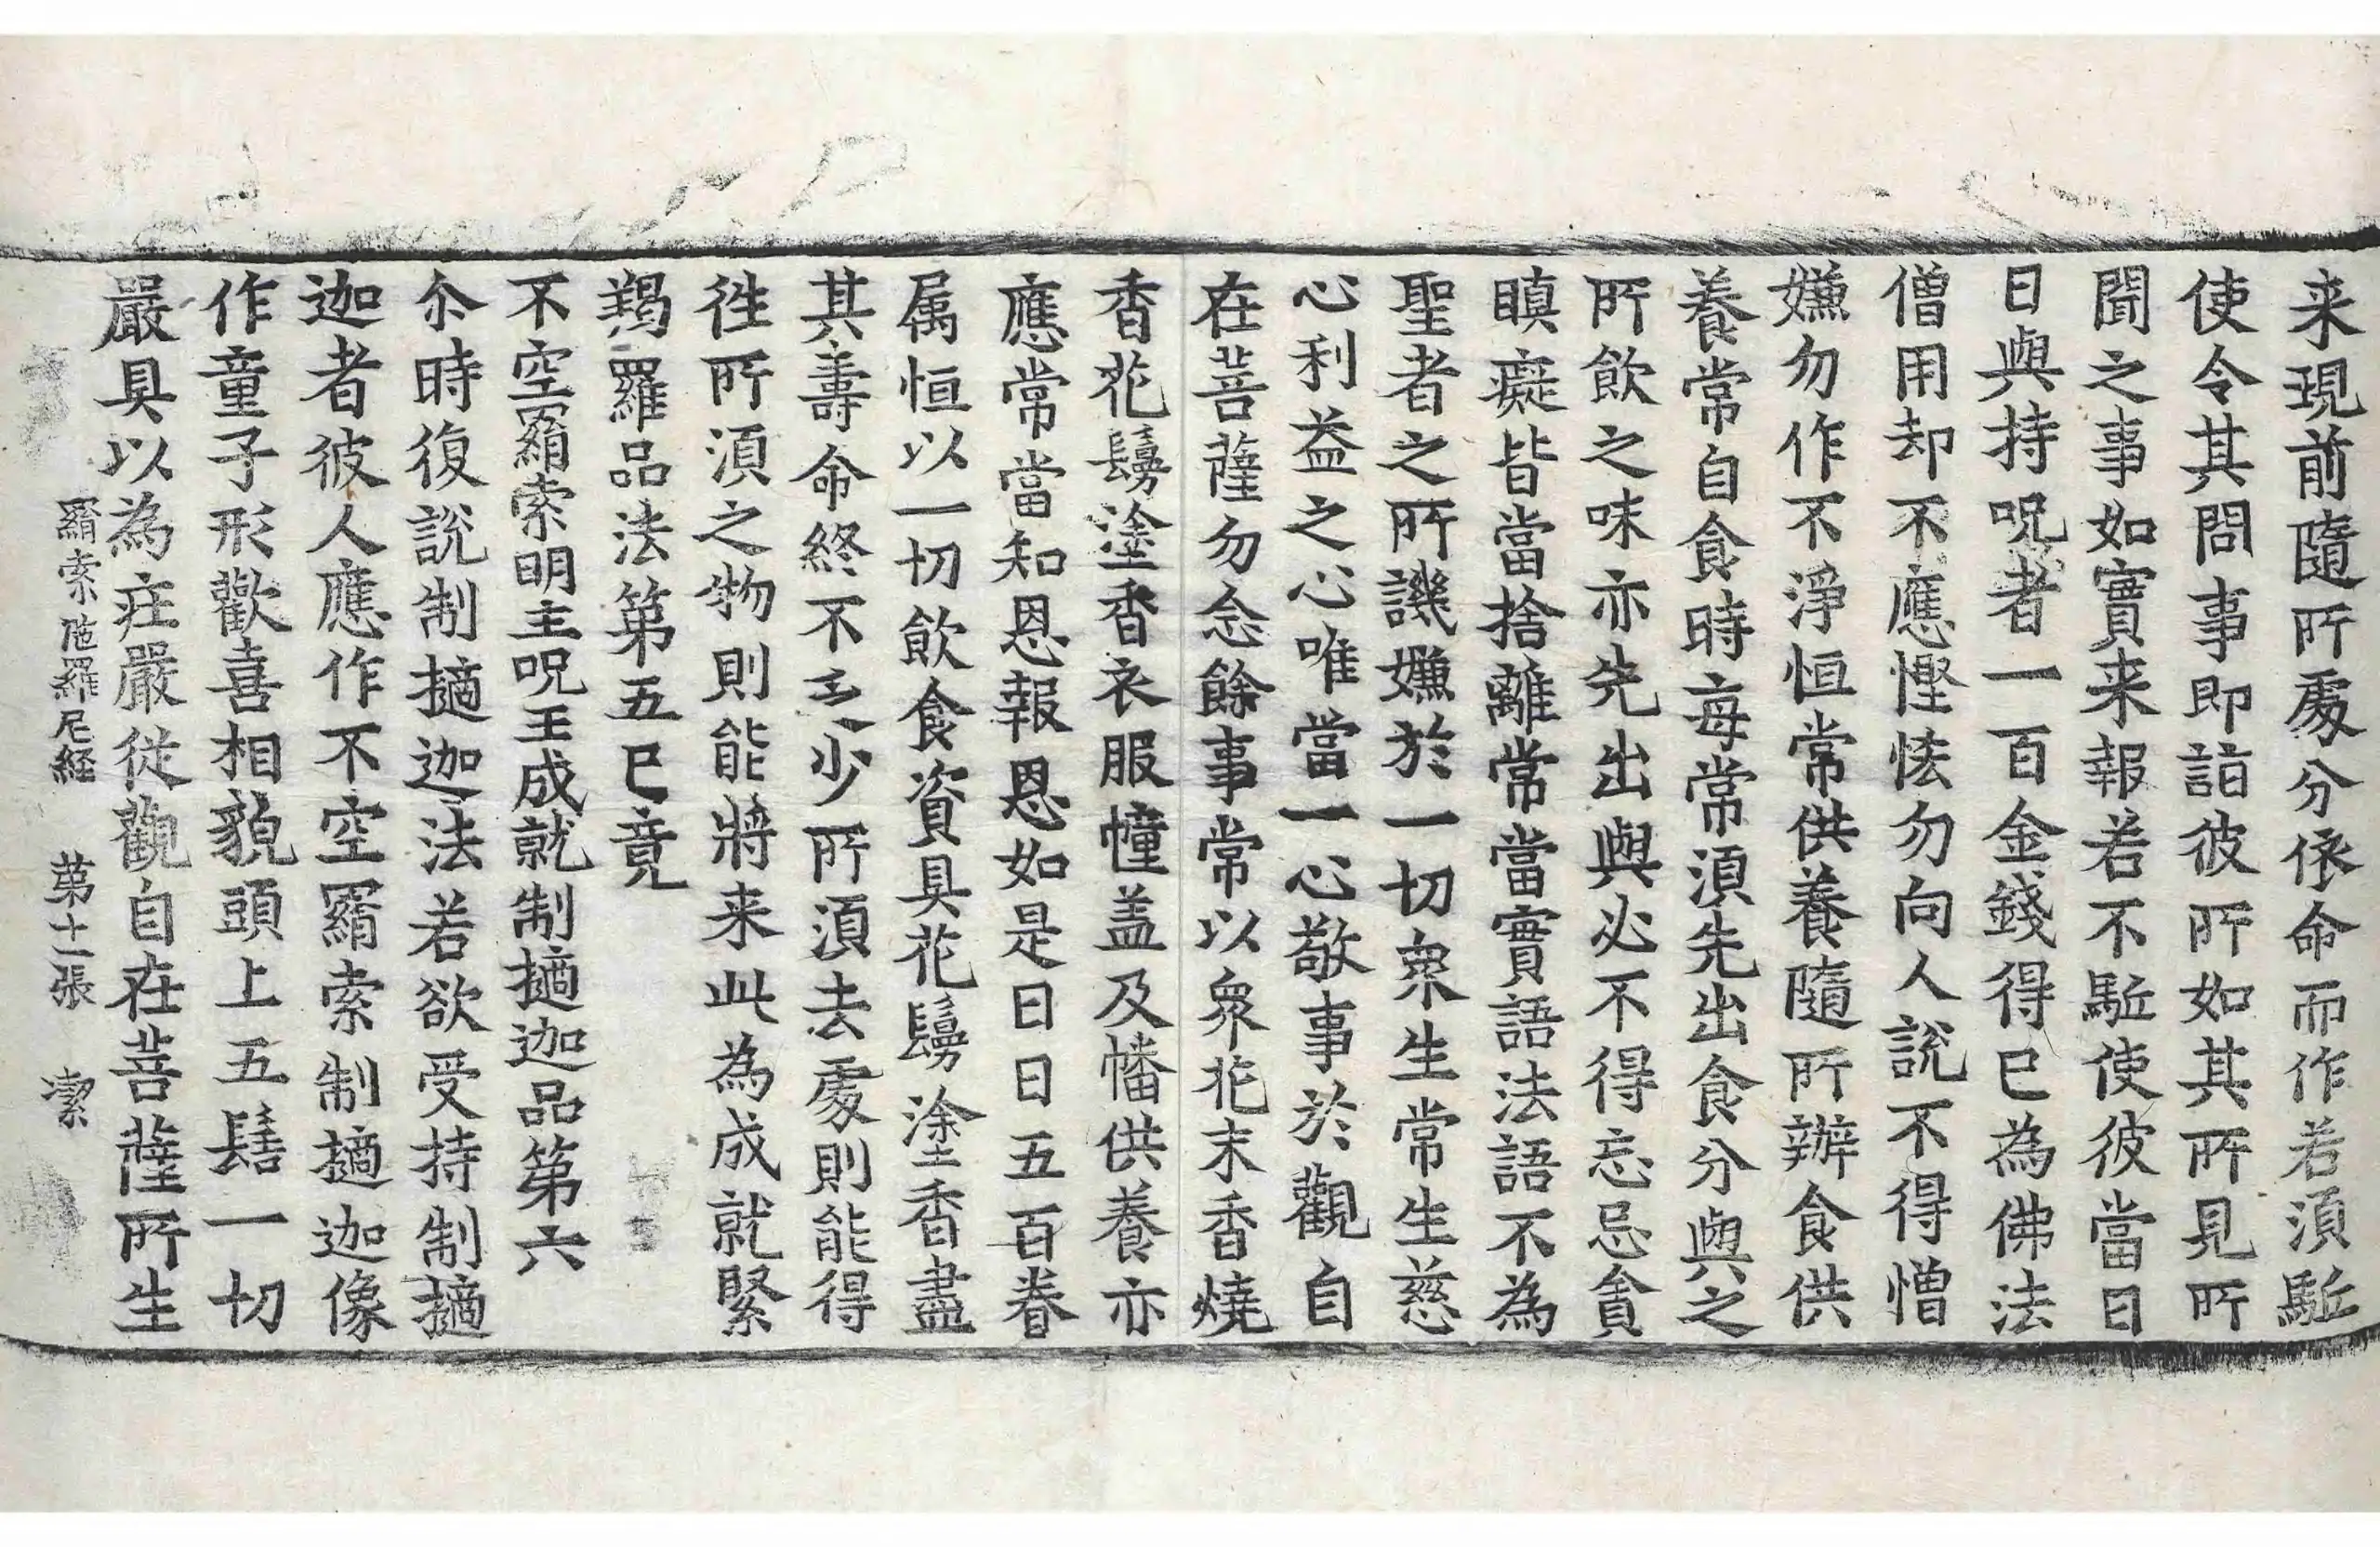 来現前隨所處分依命而作若湏駈
使令其問事即詣彼所如其所見所
聞之事如實来報若不駈使彼當日
日與持呪者一百金錢得已為佛法
僧用却不應慳悋勿向人說不得憎
嫌勿作不淨恒常供養隨所辦食供
養常自食時每常湏先出食分與之
所飲之味亦先出與必不得忘忌貪
瞋癡皆當捨離常當實語法語不為
聖者之所譏嫌於一切衆生常生慈
心利益之心唯當一心敬事於觀自
在菩薩勿念餘事常以衆花末香燒
香花鬘塗香衣服幢盖及幡供養亦
應常當知恩報恩如是日日五百眷
属恒以一切飲食資具花鬘塗香盡
其壽命終不乏少所湏去處則能得
徃所湏之物則能將来此為成就緊
羯羅品法第五已竟
不空羂索明主呪王成就制擿迦品第六
尒時復說制擿迦法若欲受持制擿
迦者彼人應作不空羂索制擿迦像
作童子形歡喜相貌頭上五髻一切
嚴具以為庄嚴從觀自在菩薩所生
羂索陁羅尼経 第十一張 潔